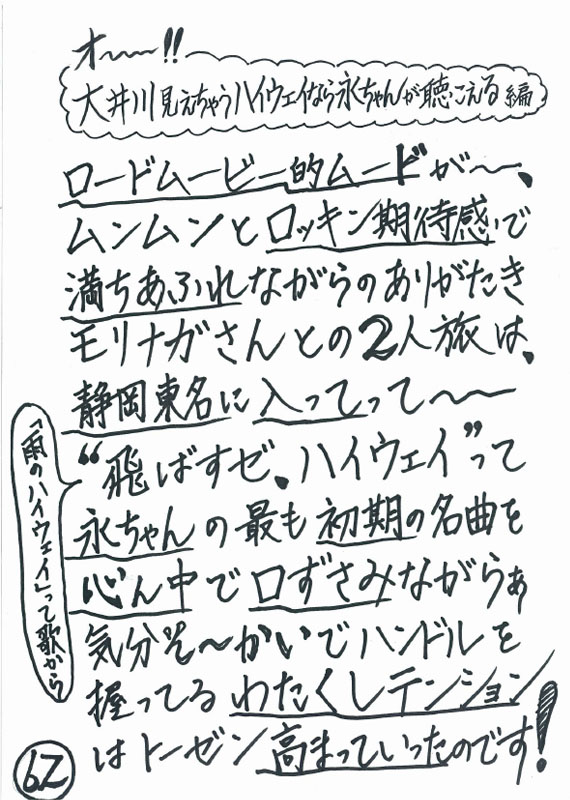 オ〜〜!!
大井川見えちゃうハイウェイなら永ちゃんが聴こえる編
ロードムービー的ムードが〜、
ムンムンとロッキン期待感で
満ちあふれながらのありがたき
モリナガさんとの2人旅は、
静岡東名に入ってって〜〜
“飛ばすゼ、ハイウェイ”って
永ちゃんの最も初期の名曲を
心ん中で口ずさみながらぁ
気分そ〜かいでハンドルを
握ってるわたくしテンション
はトーゼン高まっていったのです!
「雨のハイウェイ」って歌から
62